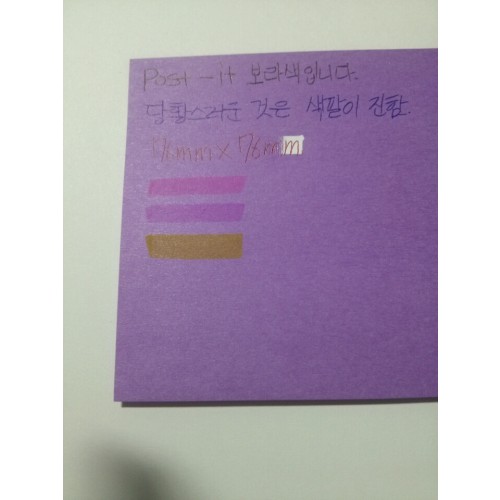 Post-it 보라색입니다.
당황스러운 것은 색깔이 진함.
76mm x 76mm